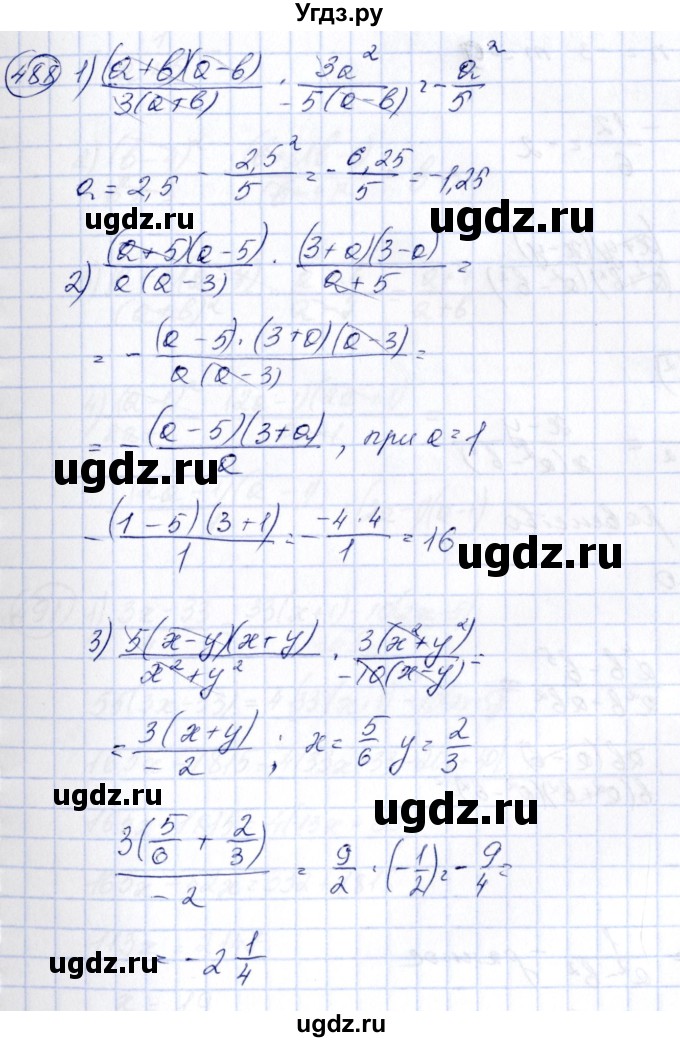 Угдз.ру
488 1) (a+b)(a-b)/3(a+b) · 3a²/-5(a-b) = -a²/5
a = 2,5 -2,5²/5 = -6,25/5 = -1,25
ugdz.ru ugdz.ru
2) (a+5)(a-5)/a(a-3) · (3+a)(3-a)/a+5 =
= -(a-5)·(3+a)(a-3)/a(a-3) =
= -(a-5)(3+a)/a, при a=1
ugdz.ru ugdz.ru
-(1-5)(3+1)/1 = -(-4·4)/1 = 16
ugdz.ru
3) 5(x-y)(x+y)/x²+y² · 3(x²+y²)/-10(x-y) =
= 3(x+y)/-2; x = 5/6 y = 2/3
ugdz.ru ugdz.ru
3(5/6 + 2/3)/-2 = 9/2 · (-1/2) = -9/4 =
= -2 1/4
ugdz.ru ugdz.ru
ugdz.ru